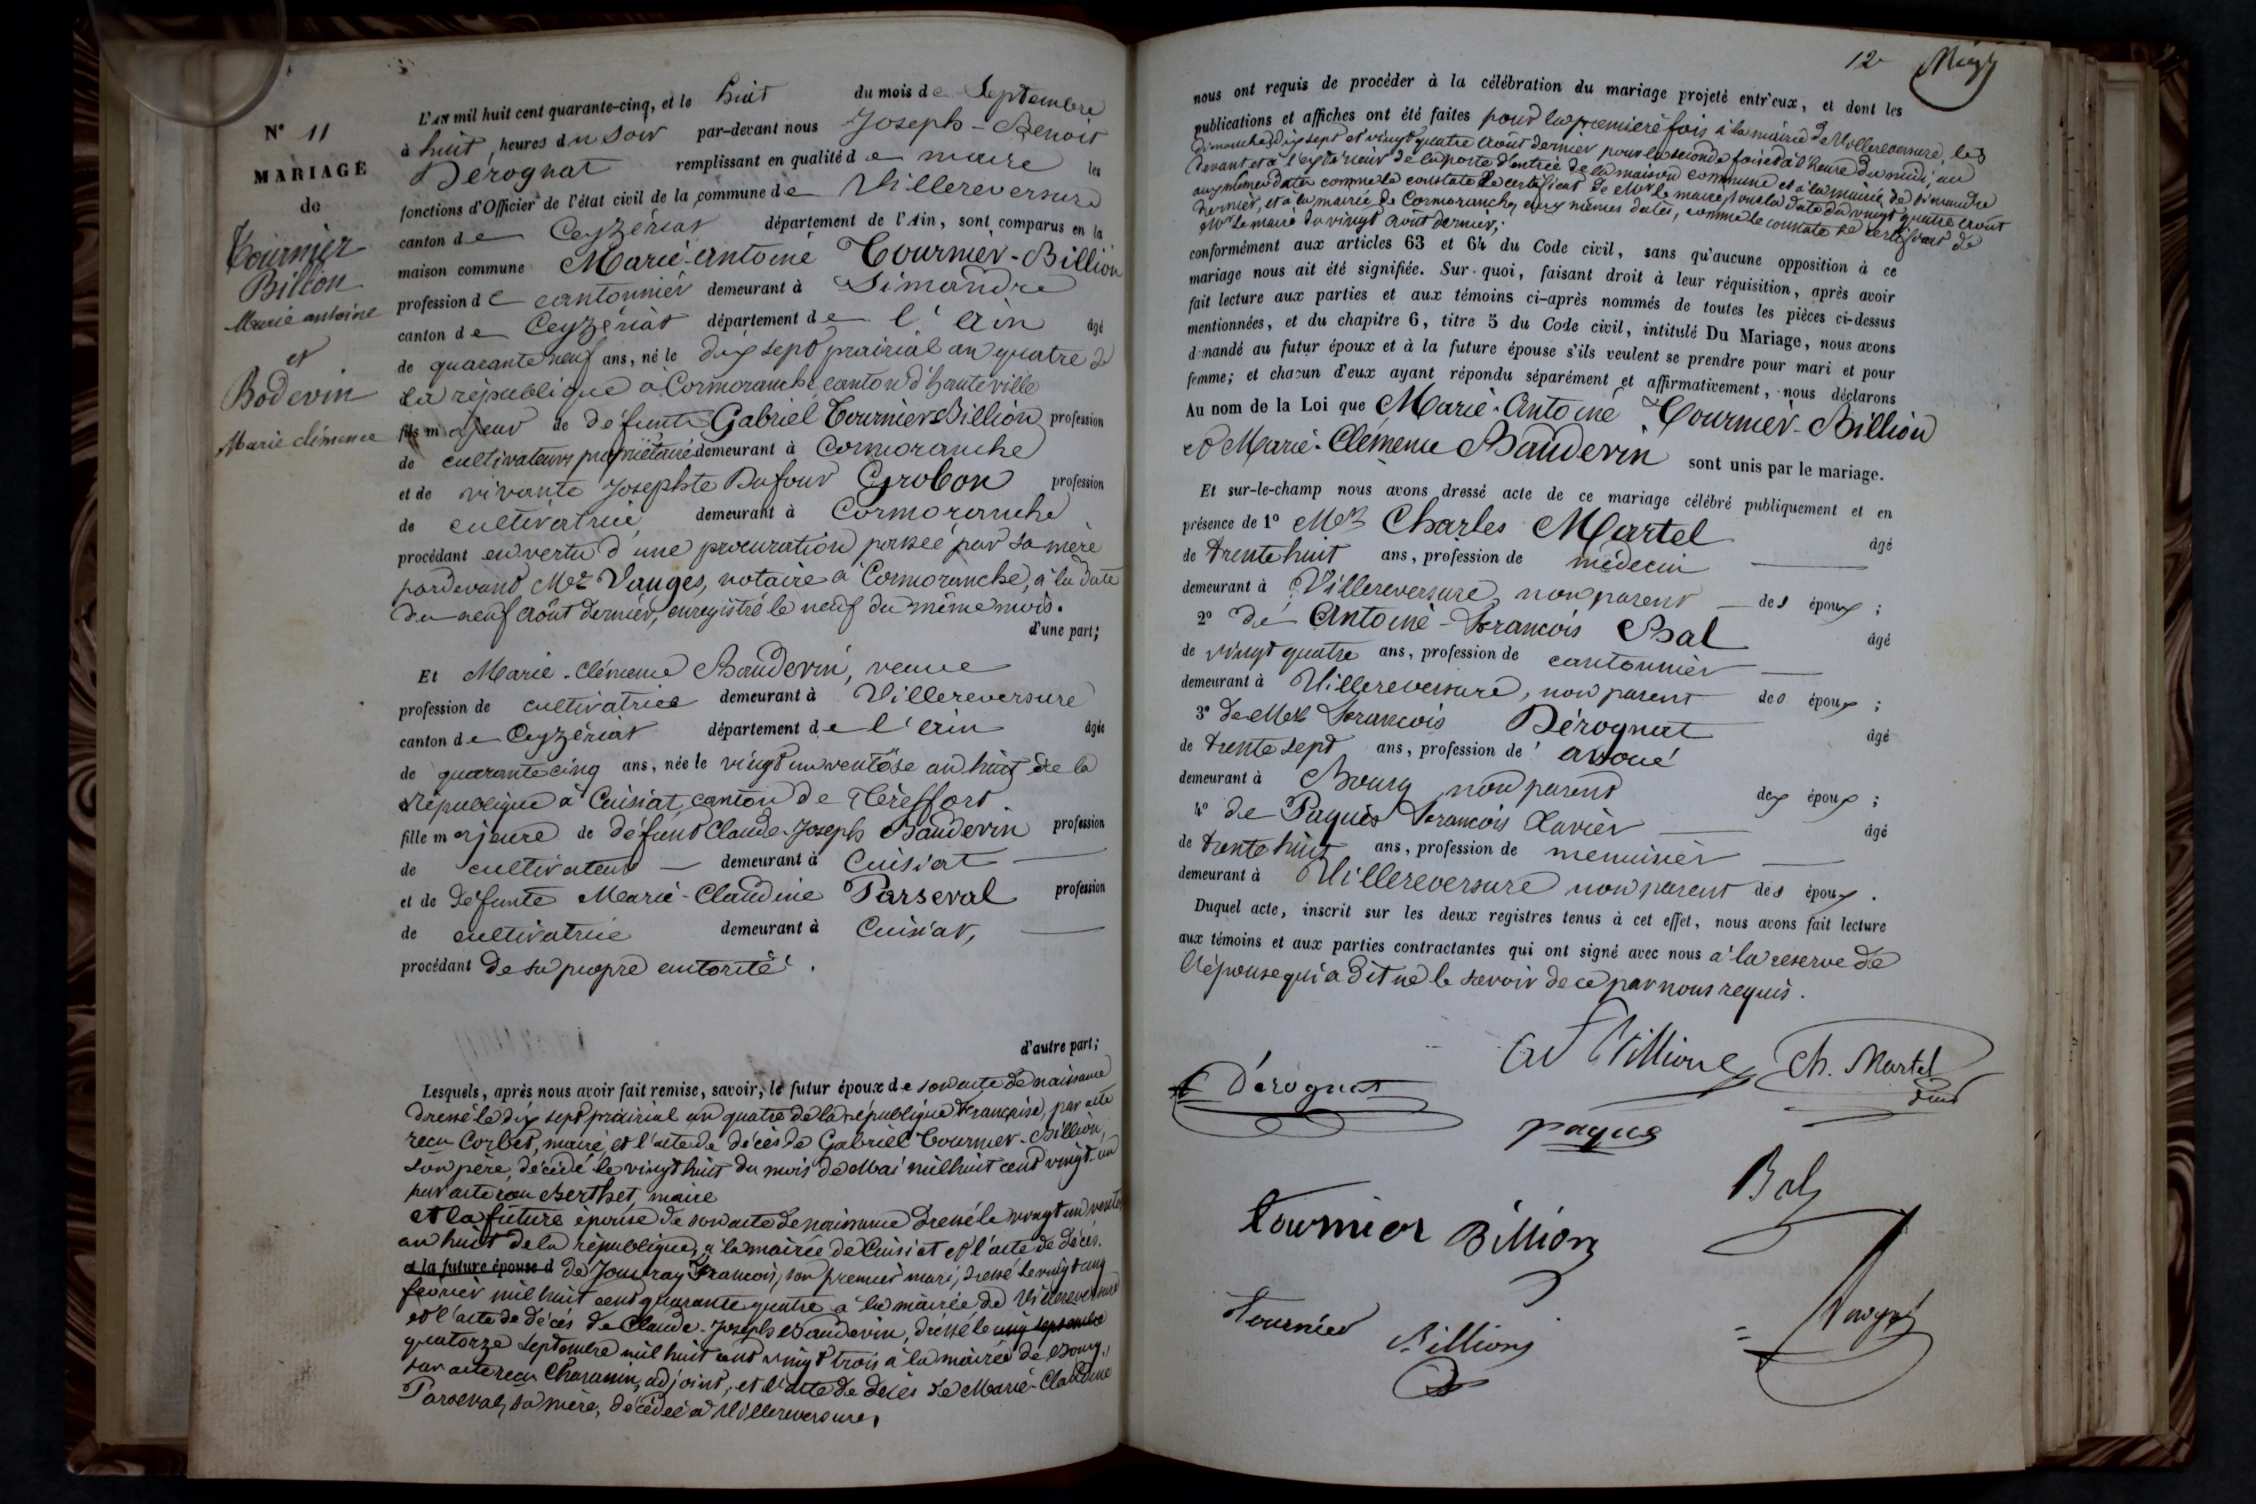 N° 11
MARIAGE
de
Tournier
Billion
Marie antoine
et
Bodevin
Marie clémence
L'AN mil huit cent quarante-cinq, et le huit du mois de Septembre
à huit, heures du soir par-devant nous Joseph-Benoit
Dérognat remplissant en qualité de maire les
fonctions d'Officier de l'état civil de la commune de Villereversure
canton de Ceyzériat département de l'Ain, sont comparus en la
maison commune Marie-Antoine Tournier-Billion
profession de cantonnier demeurant à Simandre
canton de Ceyzériat département de l'Ain âgé
de quarante neuf ans, né le dix sept prairial an quatre de
la république à Cormoranche canton d'hauteville
fils majeur de défunt Gabriel Tournier-Billion profession
de cultivateur propriétaire demeurant à Cormoranche
et de vivante Josephte Dufour Grobon profession
de cultivatrice demeurant à Cormoranche
procédant en vertu d'une procuration passée par sa mère
pardevant Me Vauges, notaire à Cormoranche, à la date
du neuf Août dernier, enregistré le neuf du même mois.
d'une part;
Et Marie-Clémence Baudevin, veuve
profession de cultivatrice demeurant à Villereversure
canton de Ceyzériat département de l'Ain âgée
de quarante cinq ans, née le vingt un ventôse an huit de la
République à Cuisiat canton de Treffort
fille majeure de défunt Claude-Joseph Baudevin profession
de cultivateur demeurant à Cuisiat
et de défunte Marie-Claudine Parseval profession
de cultivatrice demeurant à Cuisiat,
procédant de sa propre autorité.
d'autre part;
Lesquels, après nous avoir fait remise, savoir, le futur époux de son acte de naissance
dressé le dix sept prairial an quatre de la république française, par acte
reçu Corbet, maire, et l'acte de décès de Gabriel Tournier-Billion,
son père, décédé le vingt huit du mois de Mai mil huit cent vingt-un
par acte reçu Berthet, maire
et la future épouse de son acte de naissance dressé le vingt un ventose
an huit de la république, à la mairie de Cuisiat et l'acte de décès
et la future épouse d de Jouvray François, son premier mari, dressé le vingt cinq
février mil huit cent quarante quatre à la mairie de Villereversure
et l'acte de décès de Claude-Joseph Baudevin, dressé le cinq septembre
quatorze Septembre mil huit cent vingt trois à la mairie de Bourg,
par acte reçu Charanin, adjoint, et l'acte de décès de Marie-Claudine
Parseval, sa mère, décédée à Villereversure,
12
nous ont requis de procéder à la célébration du mariage projeté entr'eux, et dont les
publications et affiches ont été faites pour la première fois à la mairie de Villereversure, les
dimanches dix sept et vingt quatre Août dernier pour la seconde fois et à l'heure du midi, au
devant et à l'extérieur de la porte d'entrée de la maison commune et à la mairie de Simandre
aux mêmes dates comme le constate le certificat de Mr le maire, sous la date du vingt quatre Août
dernier, et à la mairie de Cormoranche aux mêmes dates, comme le constate le certificat de
Mr le maire du vingt Août dernier;
conformément aux articles 63 et 64 du Code civil, sans qu'aucune opposition à ce
mariage nous ait été signifiée. Sur-quoi, faisant droit à leur réquisition, après avoir
fait lecture aux parties et aux témoins ci-après nommés de toutes les pièces ci-dessus
mentionnées, et du chapitre 6, titre 5 du Code civil, intitulé Du Mariage, nous avons
demandé au futur époux et à la future épouse s'ils veulent se prendre pour mari et pour
femme; et chacun d'eux ayant répondu séparément et affirmativement, nous déclarons
Au nom de la Loi que Marie-Antoine Tournier-Billion
et Marie-Clémence Baudevin sont unis par le mariage.
Et sur-le-champ nous avons dressé acte de ce mariage célébré publiquement et en
présence de 1° Mr Charles Martel âgé
de trente huit ans, profession de médecin
demeurant à Villereversure, non parent des époux;
2° de Antoine-François Bal âgé
de vingt quatre ans, profession de cantonnier
demeurant à Villereversure, non parent des époux;
3° de Mr François Dérognat âgé
de trente sept ans, profession de avoué
demeurant à Bourg non parent des époux;
4° de Paquis François Xavier âgé
de trente huit ans, profession de menuisier
demeurant à Villereversure non parent des époux.
Duquel acte, inscrit sur les deux registres tenus à cet effet, nous avons fait lecture
aux témoins et aux parties contractantes qui ont signé avec nous a la reserve de
l'épouse qui a dit ne le savoir de ce par nous requis.
Dérognat
Ch. Martel
paque
Bal
tournier Billion
tournier
Billion